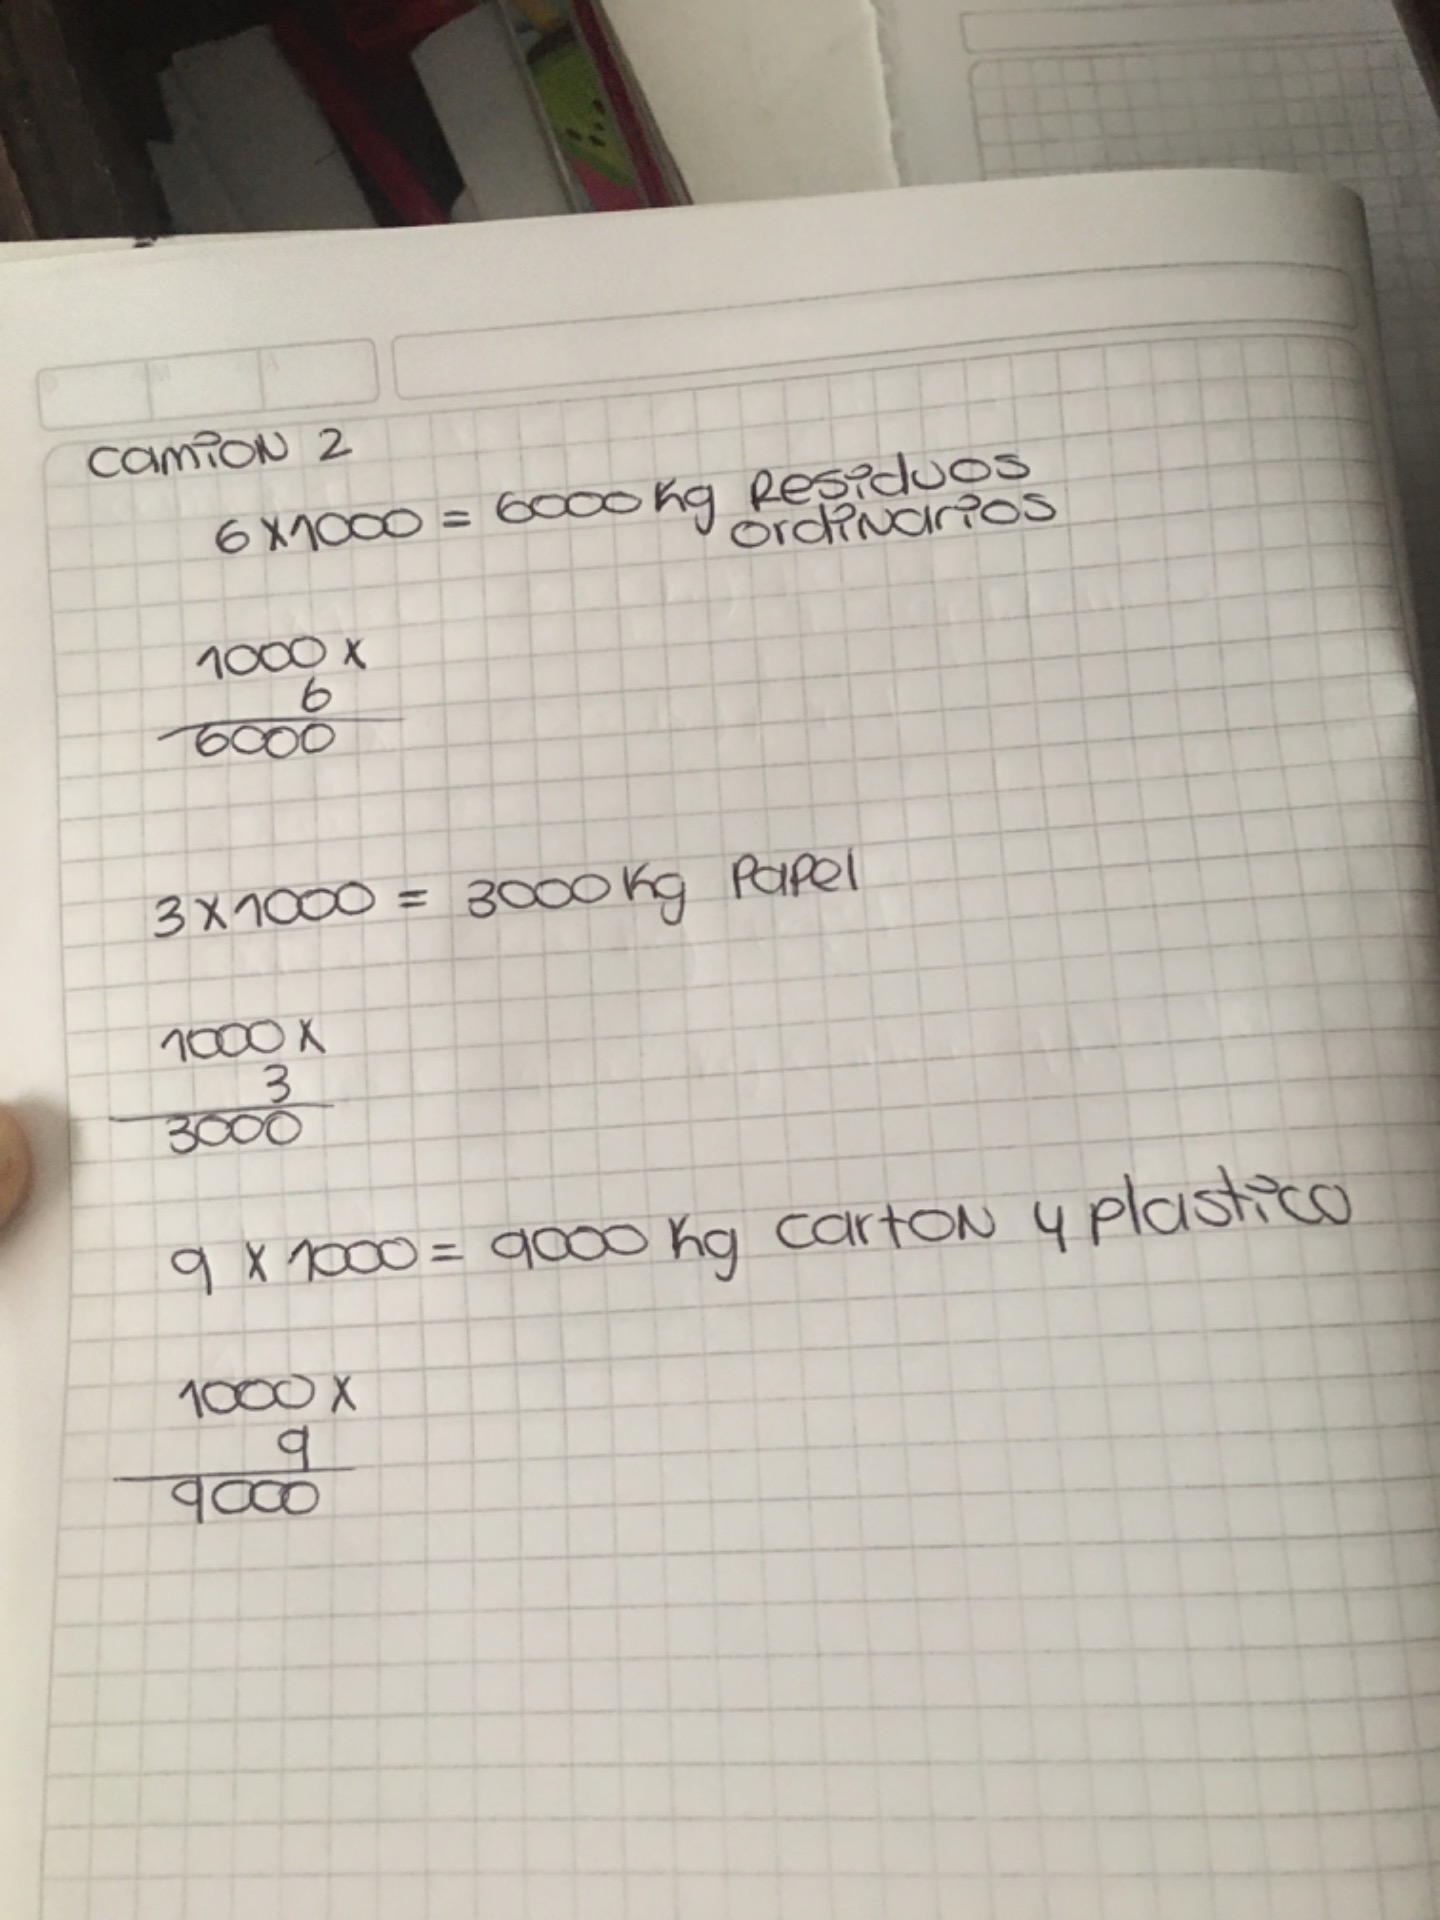 camion 2
6x1000 = 6000 Kg Residuos
ordinarios
1000 x
6
6000
3x1000 = 3000 Kg Papel
1000 x
3
3000
9 x 1000 = 9000 Kg carton y plastico
1000 x
9
9000